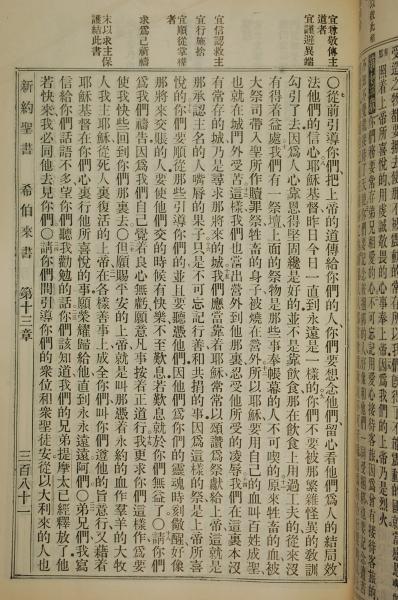 照着上帝所喜悅的用虔誠敬畏的心事奉上帝、因爲我們的上帝乃是烈火
宜尊敬傳主道者
宜謹避異端
宜信認救主
宜行施捨
宜順從掌權者
求爲己祈禱
末以求主保護結此書
〇從前引導你們、把上帝的道傳給你們的人、你們要想念他們、留心看他們爲人的結局、效
法他們的信心、耶穌基督昨日今日一直到永遠是一樣的、你們不要被那繁雜怪異的敎訓
勾引了去、因爲人心靠恩得堅固纔是好的、並不是靠飲食、那在飲食上用過工夫的從來沒
有得着益處、我們有一祭壇、上面的祭物是那些事奉帳幕的人不可喫的、原來牲畜的血被
大祭司帶入聖所作贖罪祭、牲畜的身子被燒在營外、所以耶穌要用自己的血叫百姓成聖、
也就在城門外受苦、這樣我們也當出營外到他那裏、忍受他所受的凌辱、我們在這裏本沒
有常存的城、乃是尋求那將來的城、我們應當靠着耶穌常常以頌讚爲祭獻給上帝、這就是
那承認主名的人嘴脣的果子、只是不可忘記行善和共捐的事、因爲這樣的祭是上帝所喜
悅的、你們要順從那些引導你們的、並且要聽憑他們、因他們爲你們的靈魂時刻儆醒、好像
那將來交賬的人、要使他們交的時候有快樂、不至歎息、若歎息就於你們無益了、〇請你們
爲我們禱告、因爲我們自己覺着良心無虧、願意凡事按着正道行、我更求你們這樣作、爲要
使我快些回到你們那裏去、〇但願賜平安的上帝、就是叫那憑着永約的血作羣羊的大牧
人我主耶穌從死人裏復活的上帝、在各樣善事上成全你們、叫你們遵他的旨意行、又藉着
耶穌基督在你們心裏行他所喜悅的事、願榮耀歸給他直到永永遠遠、阿們、〇弟兄們、我寫
信給你們話語不多、望你們聽我勸勉的話、你們該知道我們的兄弟提摩太已經釋放了、他
若快來、我必同他去見你們、〇請你們問引導你們的衆位和衆聖徒安、從以大利來的人也
新約聖書 希伯來書 第十三章 三百八十一